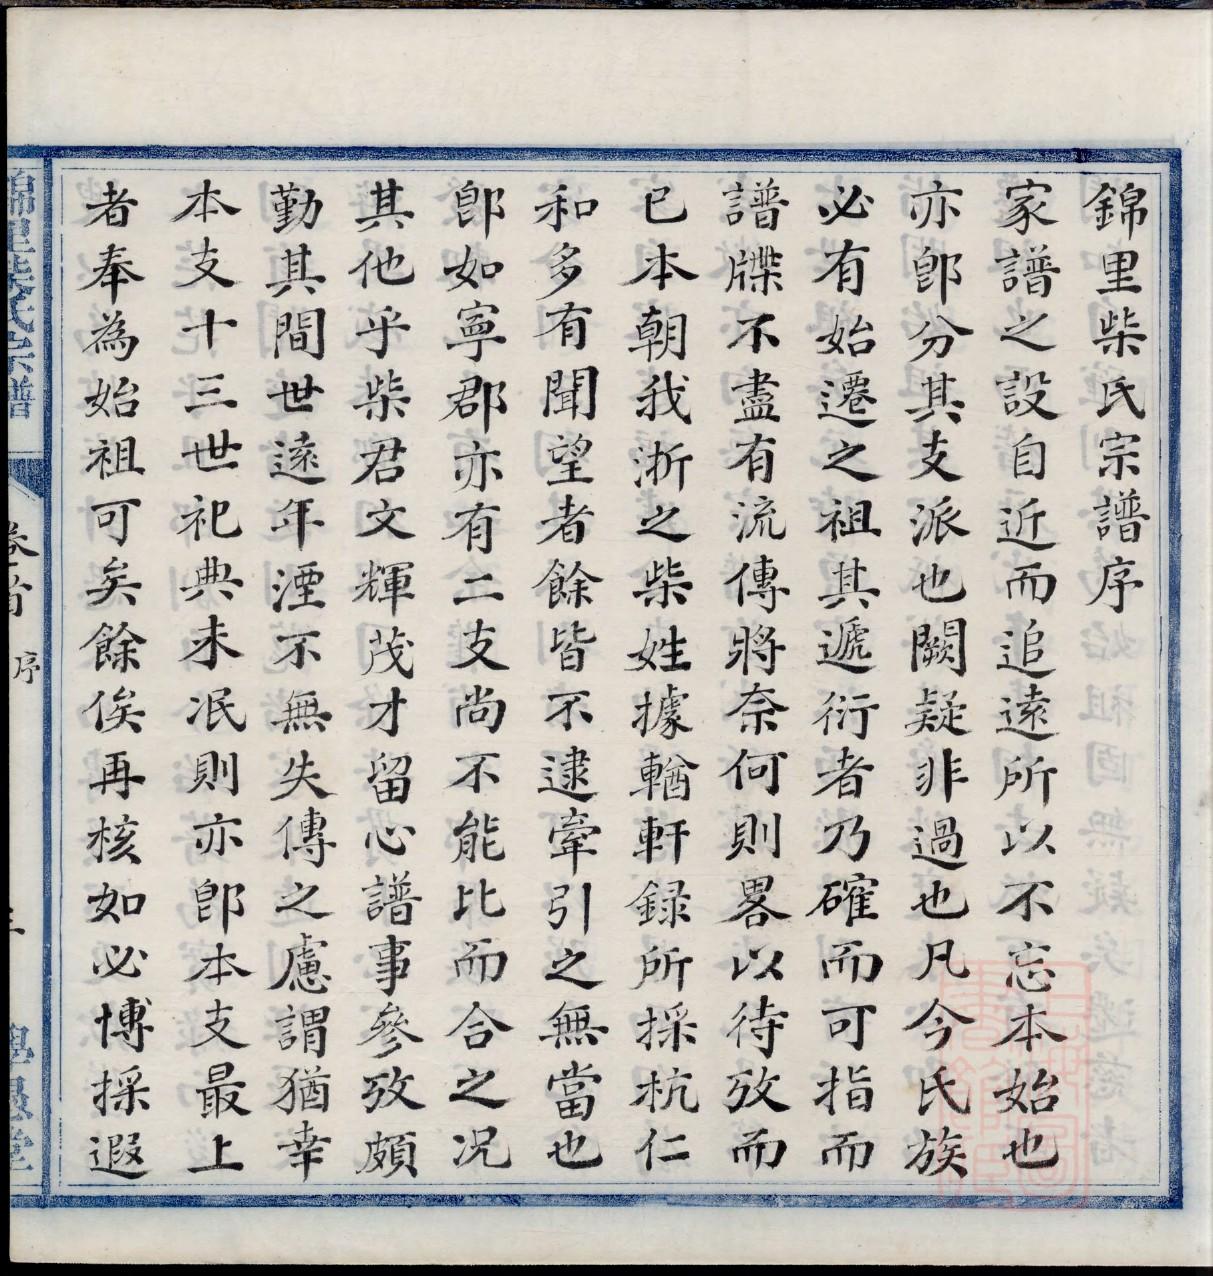 錦里柴氏宗譜序
家譜之設自近而追遠所以不忘本始也
亦卽分其支派也闕疑非過也凡今氏族
必有始遷之祖其遞衍者乃確而可指而
譜牒不盡有流傳將奈何則畧以待攷而
已本朝我浙之柴姓據輶軒録所採杭仁
和多有聞望者餘皆不逮牽引之無當也
卽如寧郡亦有二支尚不能比而合之况
其他乎柴君文輝茂才留心譜事參攷頗
勤其間世遠年湮不無失傳之慮謂猶幸
本支十三世祀典未泯則亦卽本支最上
者奉為始祖可矣餘俟再核如必博採遐
錦里柴氏宗譜
卷首
序